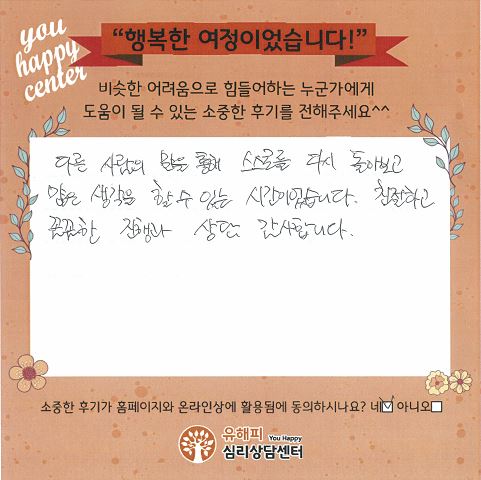 you
happy
center
“행복한 여정이었습니다!”
비슷한 어려움으로 힘들어하는 누군가에게
도움이 될 수 있는 소중한 후기를 전해주세요^^
다른 사람의 활동을 통해 스스로를 다시 돌아보고
많은 생각을 할 수 있는 시간이었습니다. 친절하고
꼼꼼한 진행과 상담 감사합니다.
소중한 후기가 홈페이지와 온라인상에 활용됨에 동의하시나요? 네☑ 아니오☐
유해피 You Happy
심리상담센터